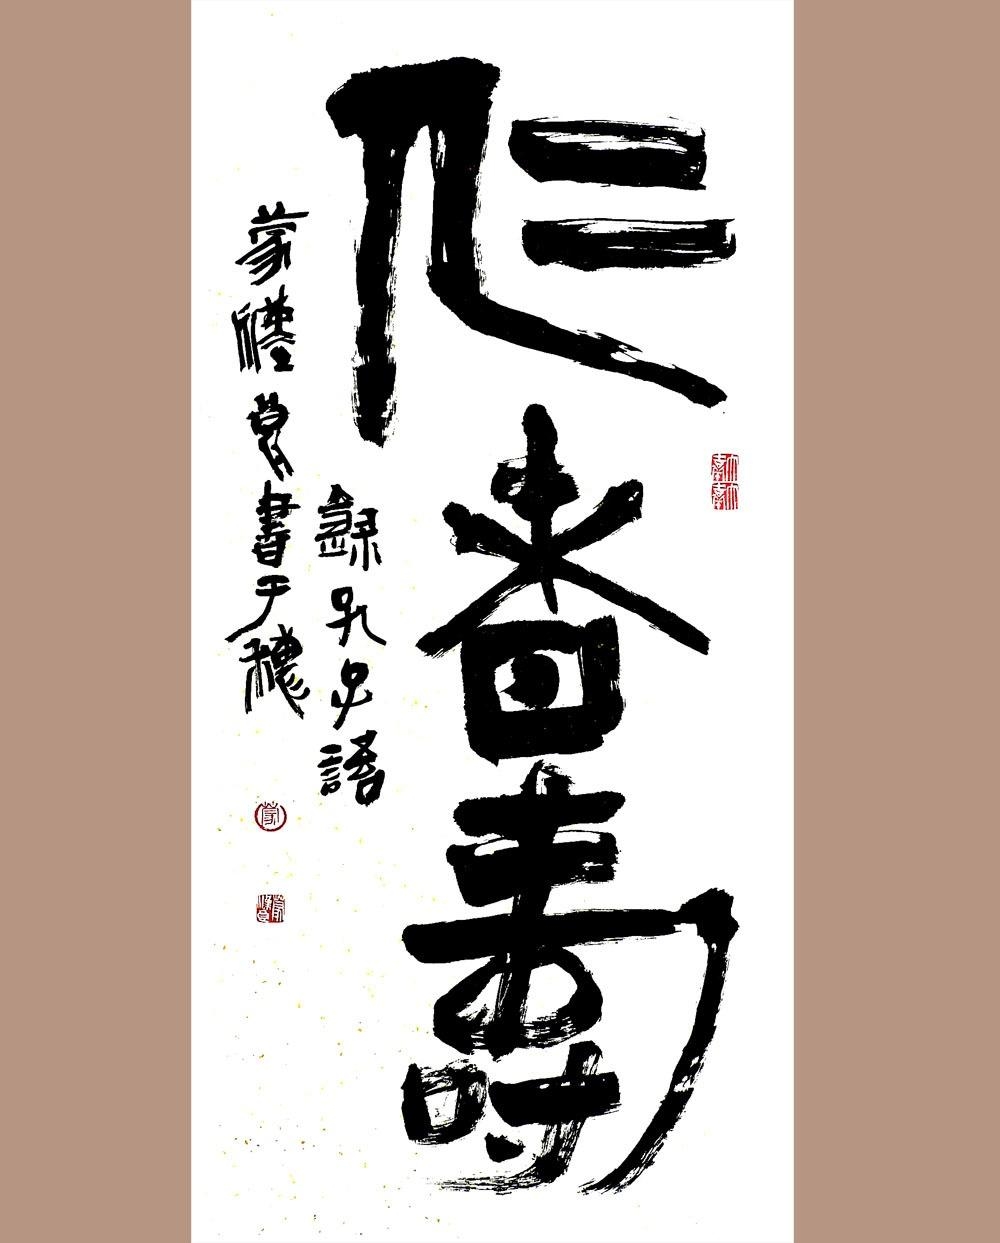 仁者壽
錄孔子語
蒙 書于穗